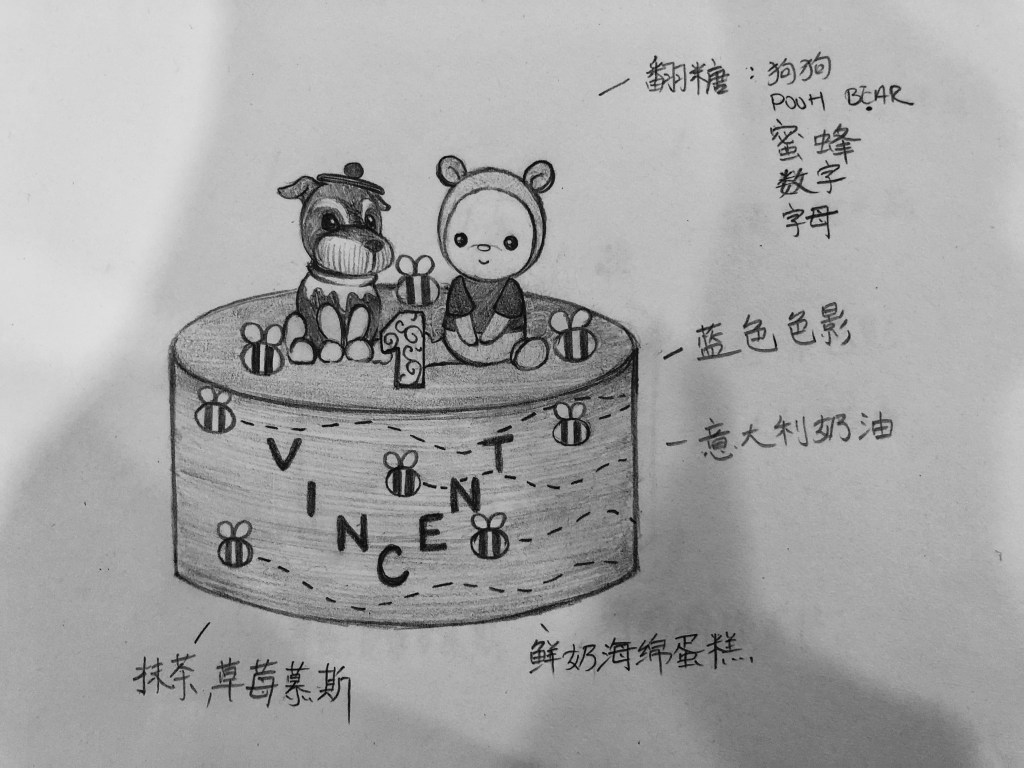 翻糖：狗狗
POOH BEAR
蜜蜂
数字
字母
蓝色色影
意大利奶油
1
VINCENT
抹茶,草莓慕斯
鲜奶海绵蛋糕.